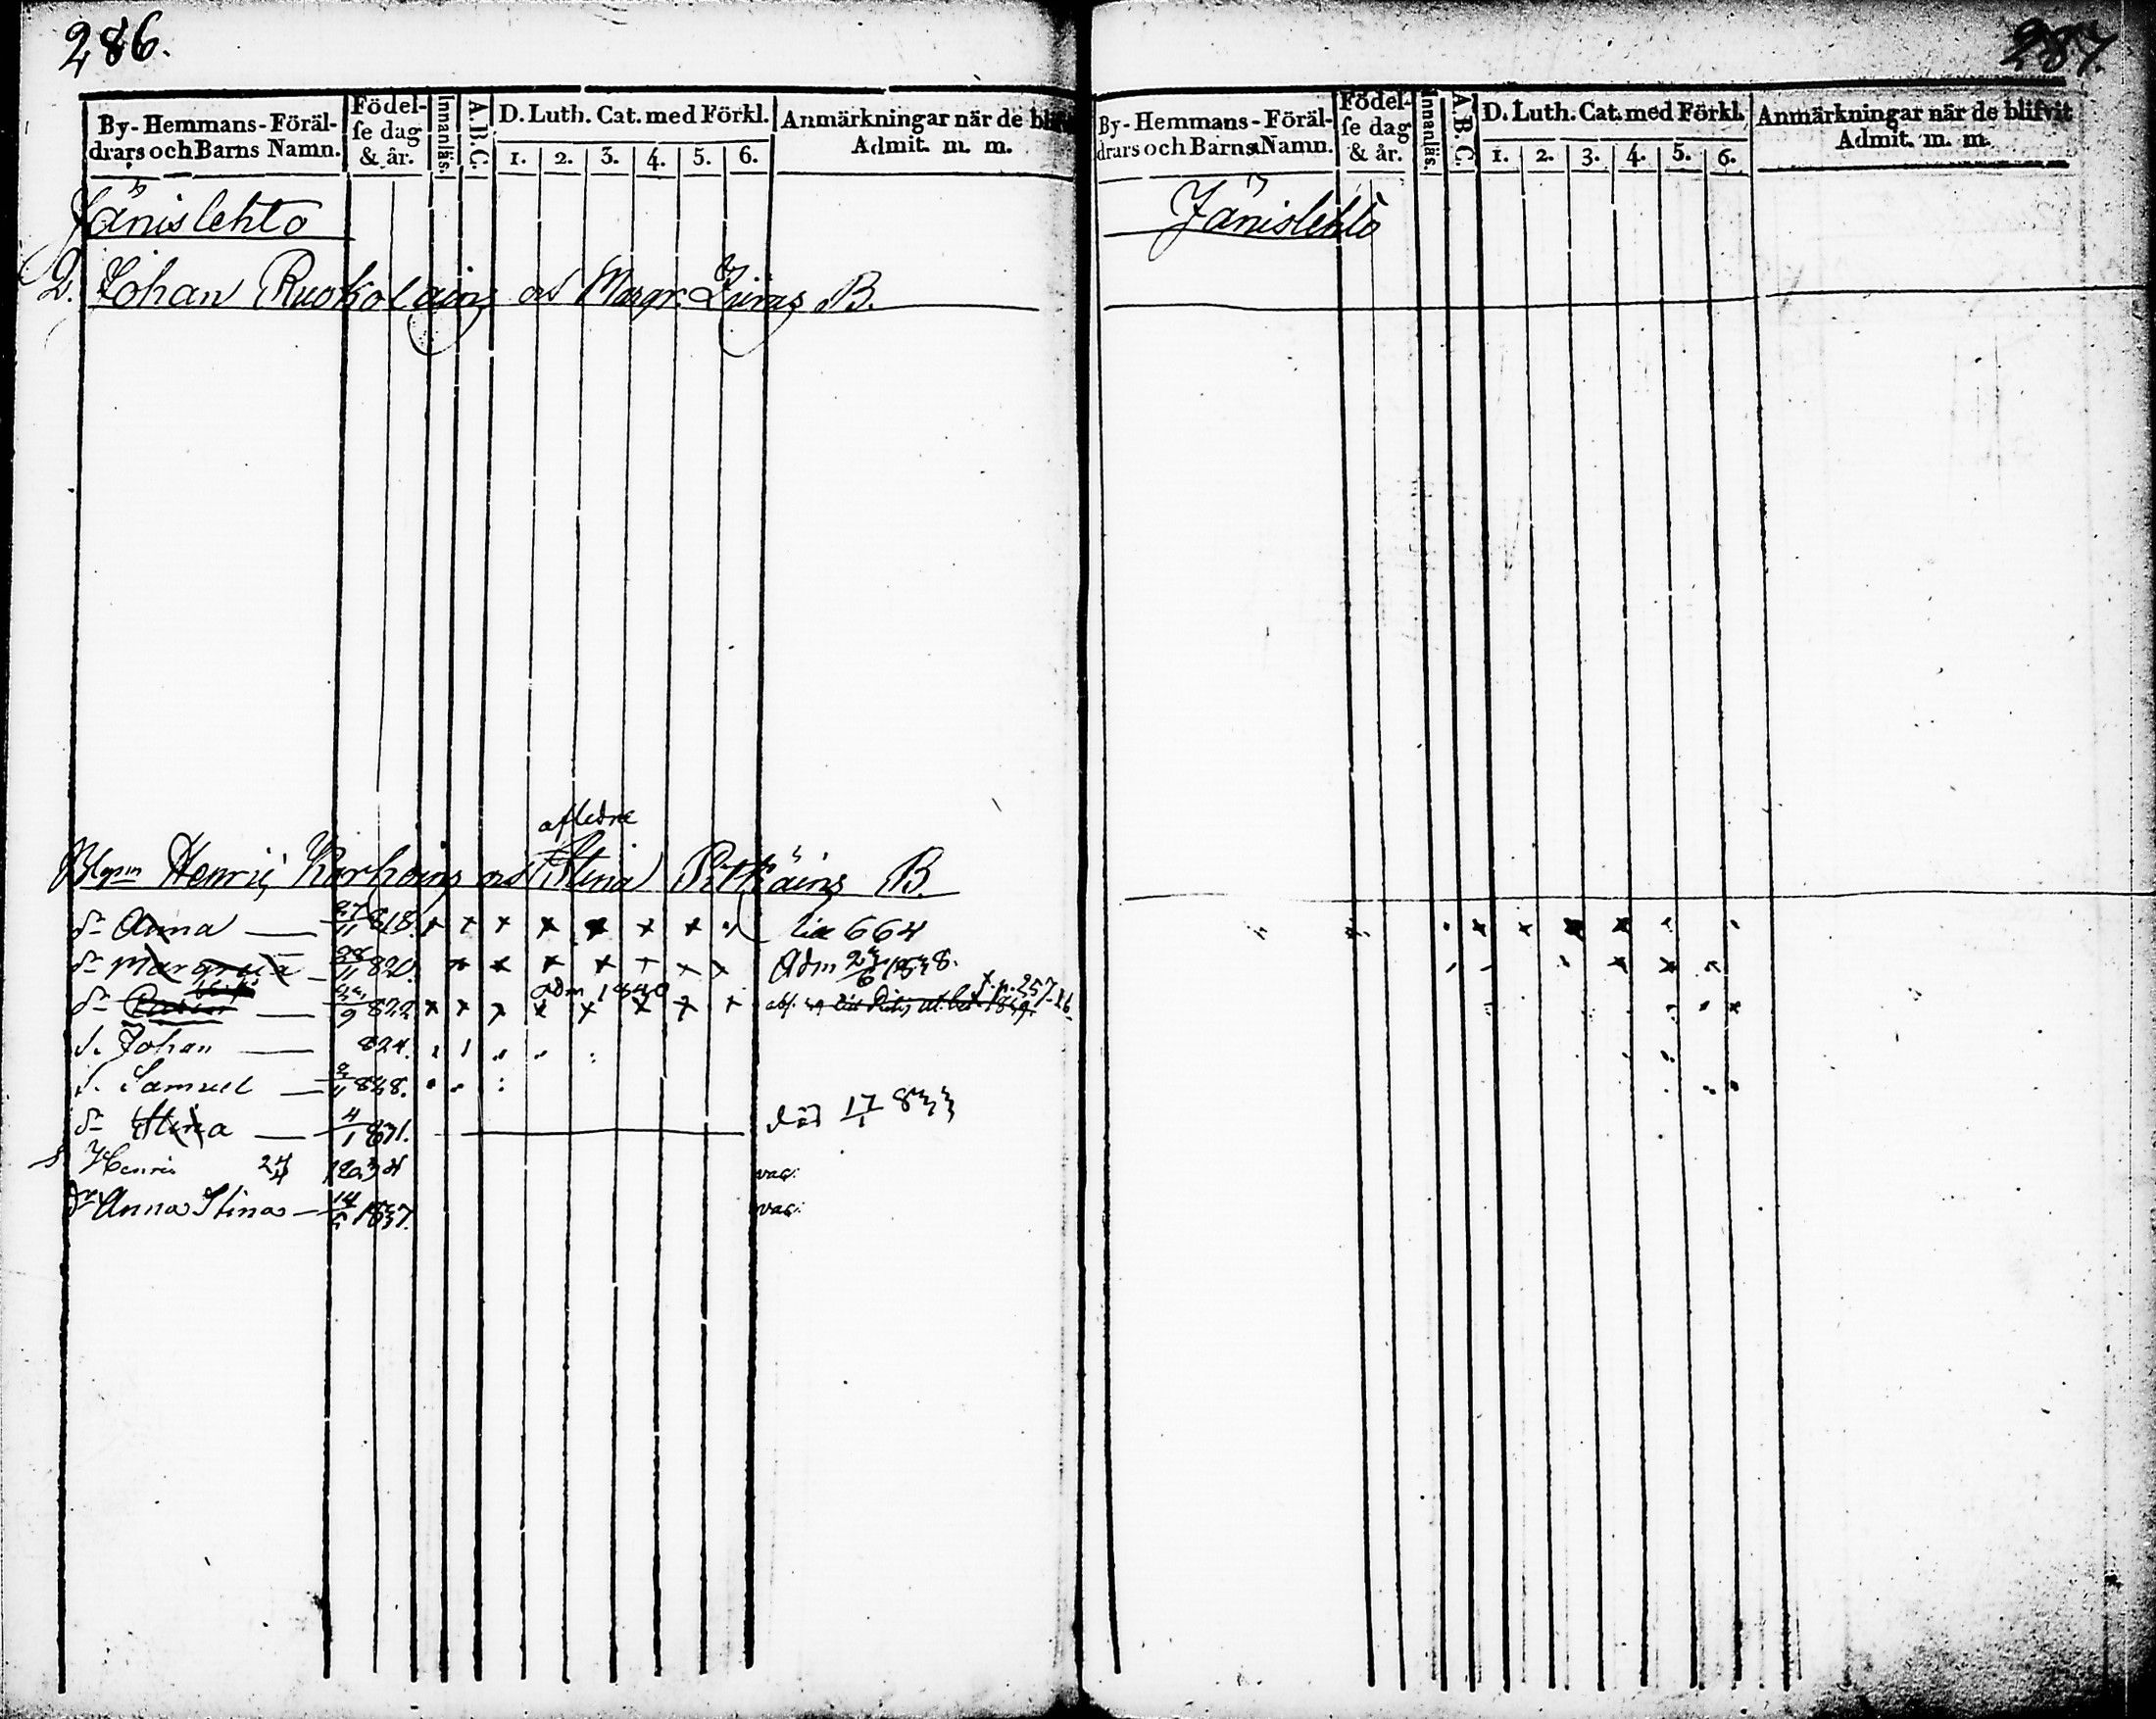 286.
By-Hemmans-Föräl-
drars och Barns Namn.
Födel-
se dag
& år.
Innanläs.
A.B.C.
D. Luth. Cat. med Förkl.
1. 2. 3. 4. 5. 6.
Anmärkningar när de blif
Admit. m. m.
Jänislehto
2. Johan Ruokolain Margr. B.
afledne
Henric Karhain Stina Pitkäin B.
dr Anna 27/11 818. x x x x x x x 664
dr Margreta 11 820. x x x x x x x Adm 24/6 1838.
adm 1840 f.p. 257
dr 9 822 x x x x x x x x
s. Johan 824.
s. Samuel 828.
dr Stina 4/1 831. död 17/1 833
s Henric 24/4 1834 vac:
dr Anna Stina 14/5 1837. vac:
287.
By-Hemmans-Föräl-
drars och Barns Namn.
Födel-
se dag
& år.
Innanläs.
A.B.C.
D. Luth. Cat. med Förkl.
1. 2. 3. 4. 5. 6.
Anmärkningar när de blifvit
Admit. m. m.
Jänislehto